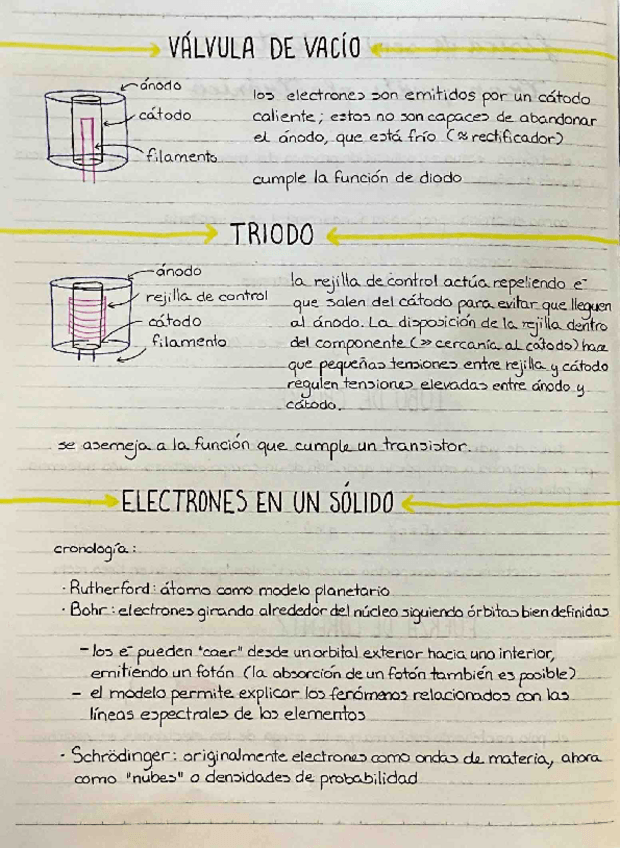 VÁLVULA DE VACÍO
ánodo
cátodo
filamento
los electrones son emitidos por un cátodo
caliente; estos no son capaces de abandonar
el ánodo, que está frío (≈ rectificador)
cumple la función de diodo
TRIODO
ánodo
rejilla de control
cátodo
filamento
la rejilla de control actúa repeliendo e⁻
que salen del cátodo para evitar que lleguen
al ánodo. La disposición de la rejilla dentro
del componente (>> cercanía al cátodo) hace
que pequeñas tensiones entre rejilla y cátodo
regulen tensiones elevadas entre ánodo y
cátodo.
se asemeja a la función que cumple un transistor.
ELECTRONES EN UN SÓLIDO
cronología:
· Rutherford: átomo como modelo planetario
· Bohr: electrones girando alrededor del núcleo siguiendo órbitas bien definidas
- los e⁻ pueden "caer" desde un orbital exterior hacia uno interior,
emitiendo un fotón (la absorción de un fotón también es posible)
- el modelo permite explicar los fenómenos relacionados con las
líneas espectrales de los elementos
· Schrödinger: originalmente electrones como ondas de materia, ahora
como "nubes" o densidades de probabilidad